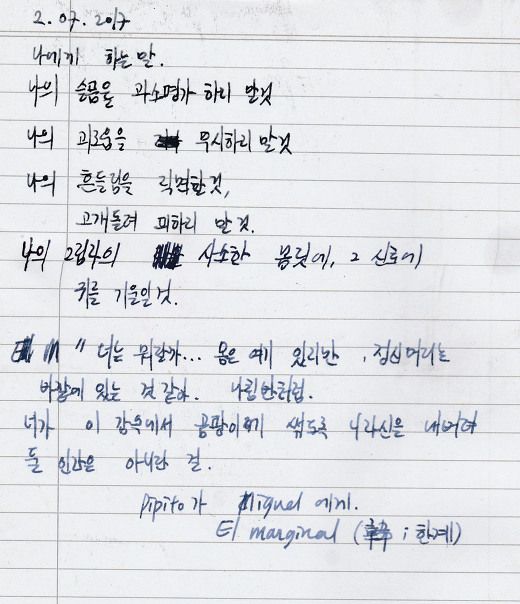 2.07.2017
나에게 하는 말.
나의 슬픔을 과소평가 하지 말것
나의 괴로움을 무시하지 말것
나의 흔들림을 직면할 것,
고개돌려 피하지 말것.
나의 그림자의 사소한 몸짓에, 그 신호에
귀를 기울일 것.
" 너는 뭐랄까... 몸은 여기 있지만, 정신머리는
바깥에 있는 것 같아. 나침반처럼.
너가 이 감옥에서 곰팡이 썩도록 너 자신을 내버려
둘 인간은 아니란 걸.
pipito가 Miguel 에게.
El marginal ( ; 한계)